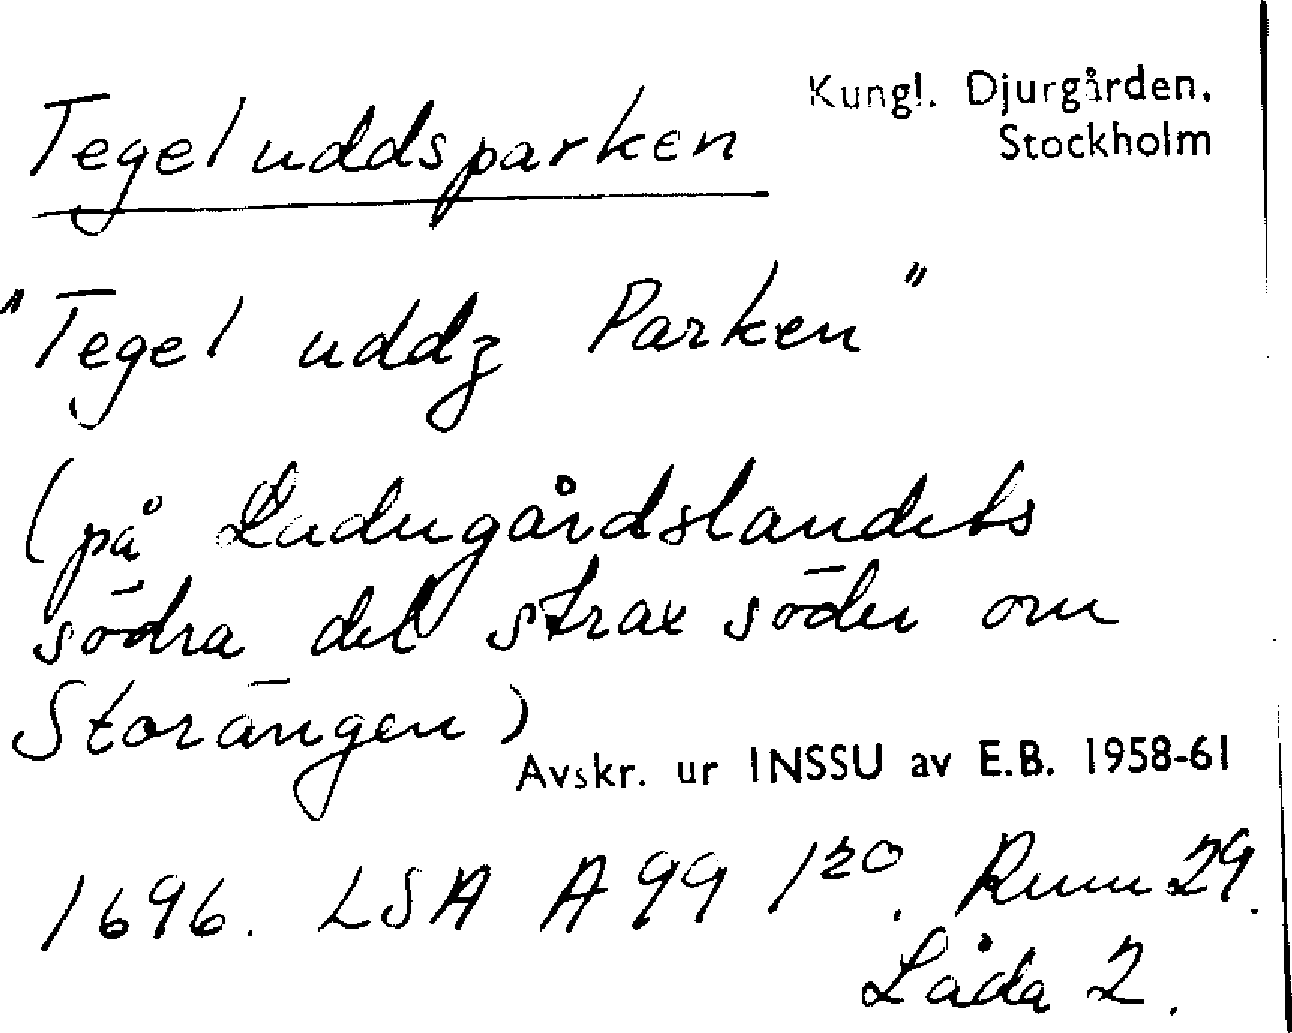 Tegeluddsparken
Kungl. Djurgården.
Stockholm
"Tegel uddz Parken"
(på Ladugårdslandets
södra del strax söder om
Storängen)
Avskr. ur INSSU av E.B. 1958-61
1696. LSA A 99 1²⁰. Rum 29.
Låda 2.